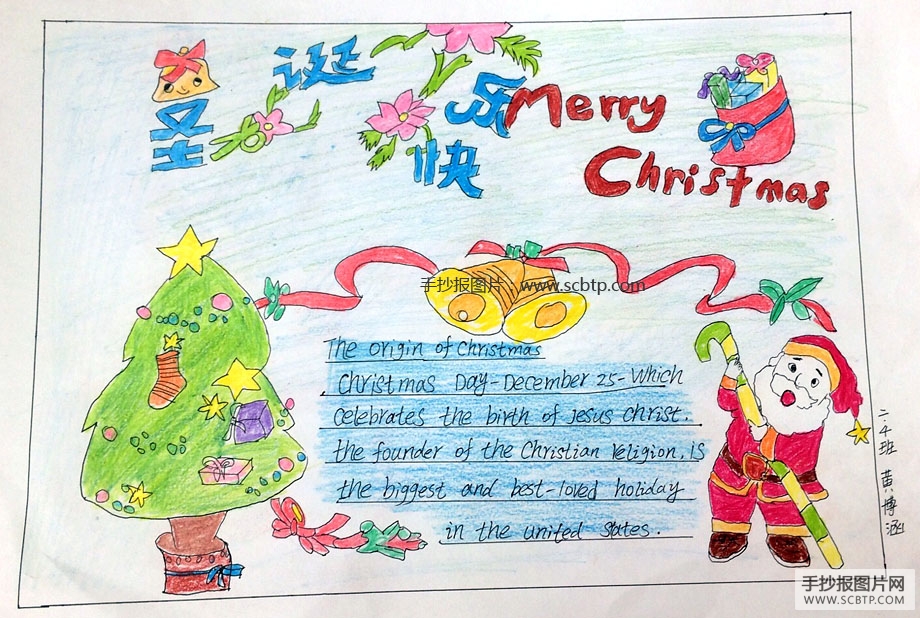 圣诞快乐
Merry
Christmas
手抄报图片：www.scbtp.com
The origin of Christmas
Christmas Day-December 25-Which
celebrates the birth of Jesus Christ.
the founder of the Christian religion, is
the biggest and best-loved holiday
in the united states.
二.4班 黄博涵
手抄报图片网
WWW.SCBTP.COM